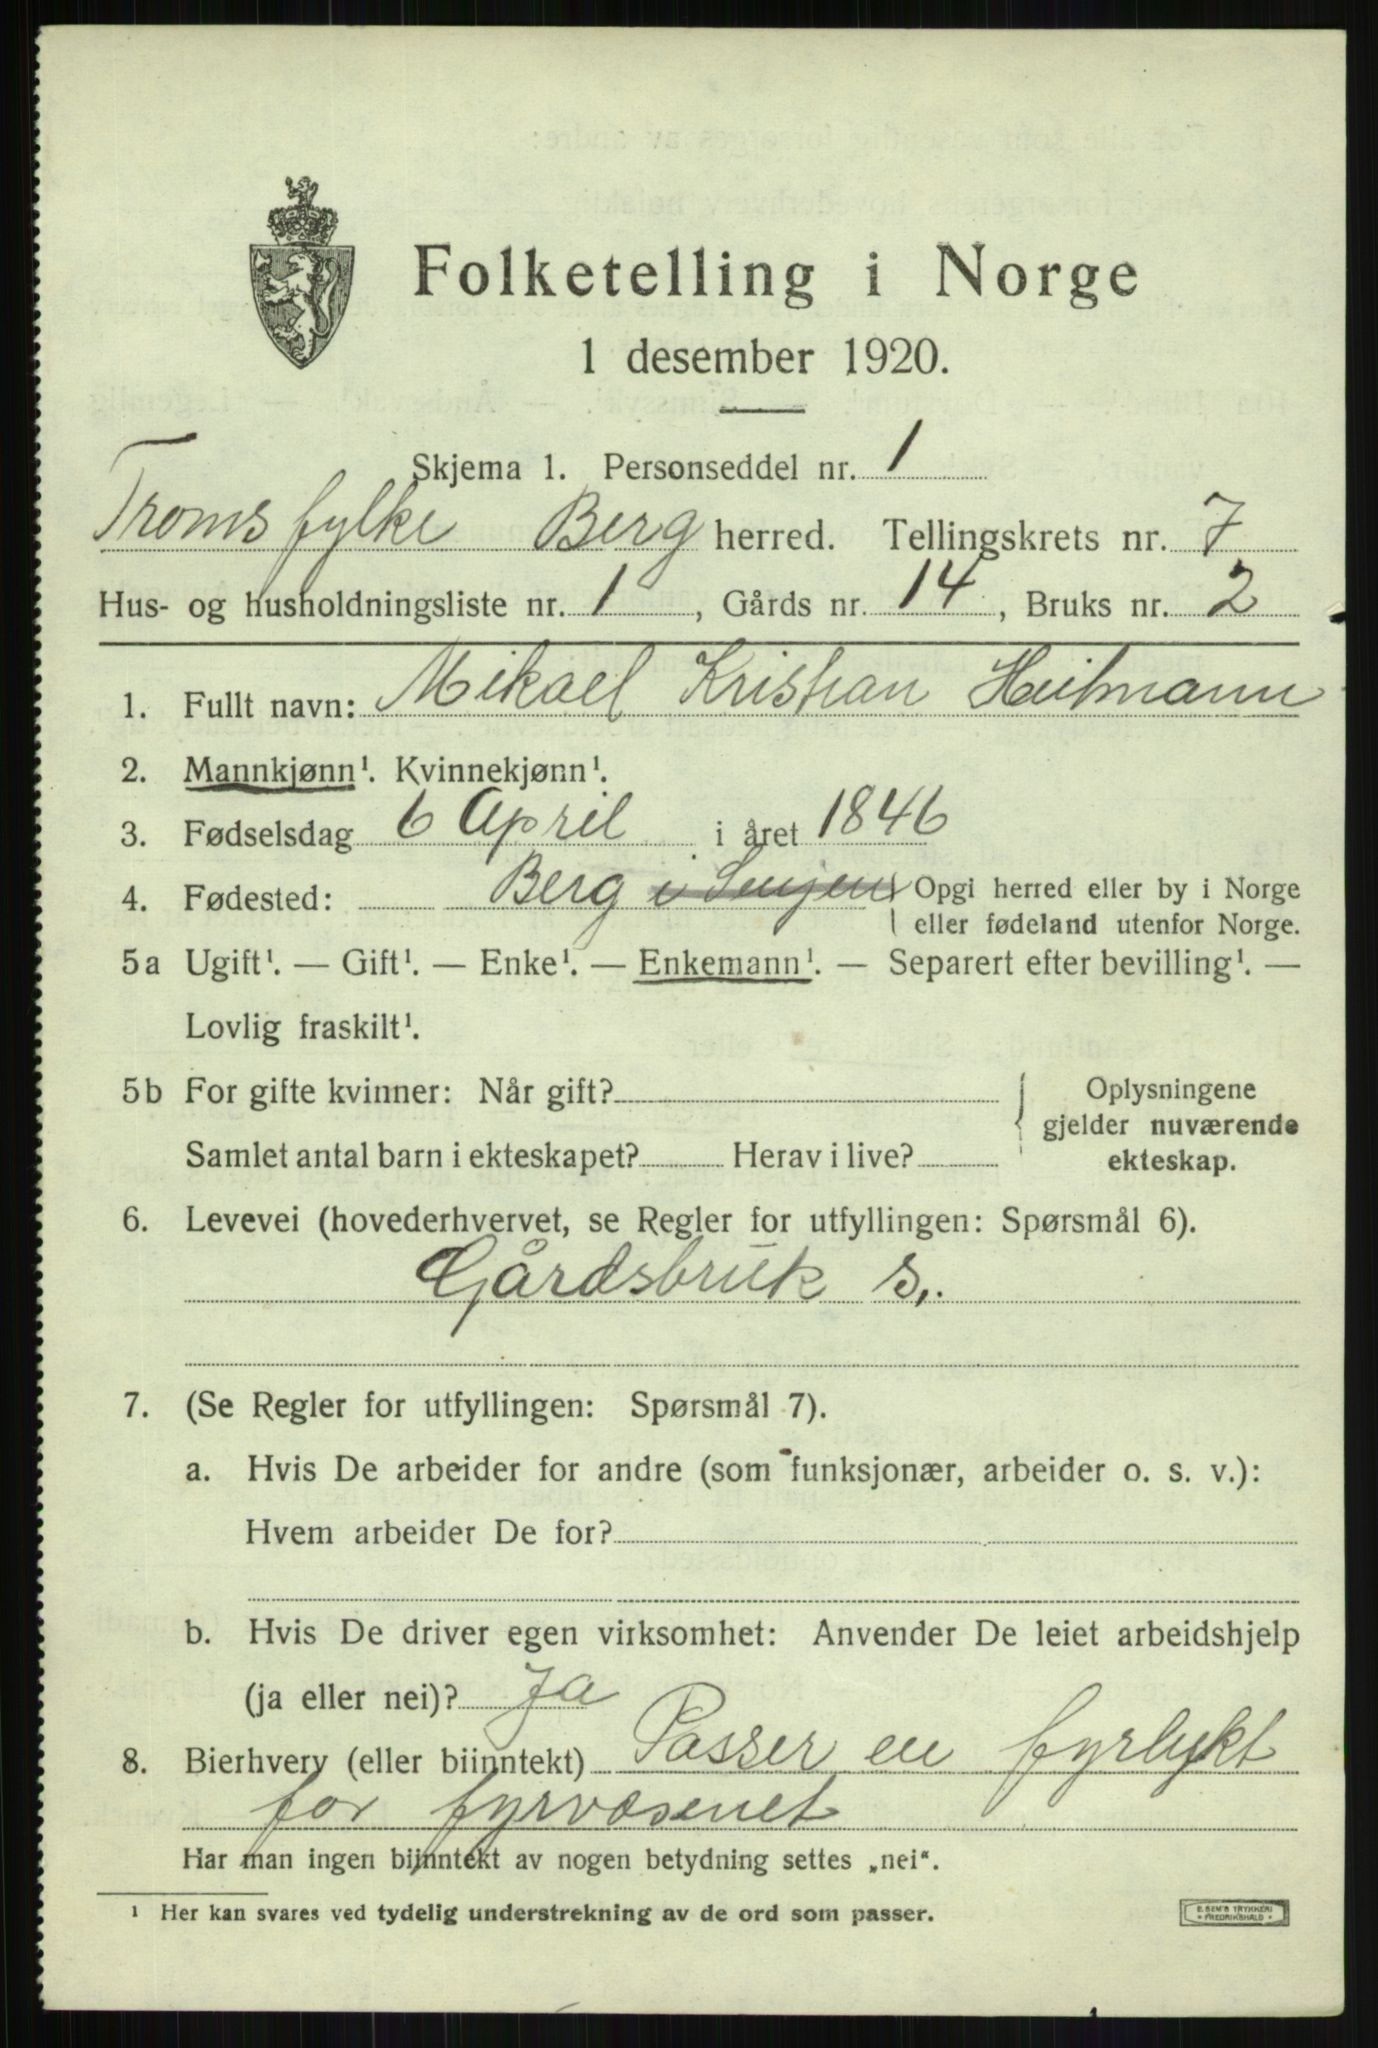 Folketelling i Norge
1 desember 1920.
Skjema 1. Personseddel nr. 1
Troms fylke Berg herred. Tellingskrets nr. 7
Hus- og husholdningsliste nr. 1, Gårds nr. 14, Bruks nr. 2
1. Fullt navn: Mikael Kristian Heitmann
2. Mannkjønn¹. Kvinnekjønn¹.
3. Fødselsdag 6 April i året 1846
4. Fødested: Berg i Senjen Opgi herred eller by i Norge
eller fødeland utenfor Norge.
5a Ugift¹. — Gift¹. — Enke¹. — Enkemann¹. — Separert efter bevilling¹. —
Lovlig fraskilt¹.
5b For gifte kvinner: Når gift? Oplysningene
gjelder nuværende
Samlet antal barn i ekteskapet? Herav i live? ekteskap.
6. Levevei (hovederhvervet, se Regler for utfyllingen: Spørsmål 6).
Gårdsbruk s.
7. (Se Regler for utfyllingen: Spørsmål 7).
a. Hvis De arbeider for andre (som funksjonær, arbeider o. s. v.):
Hvem arbeider De for?
b. Hvis De driver egen virksomhet: Anvender De leiet arbeidshjelp
(ja eller nei)? Ja
8. Bierhverv (eller biinntekt) Passer en fyrlykt
for fyrvæsenet
Har man ingen biinntekt av nogen betydning settes „nei“.
¹ Her kan svares ved tydelig understrekning av de ord som passer.
E. SEM'S TRYKKERI
FREDRIKSHALD